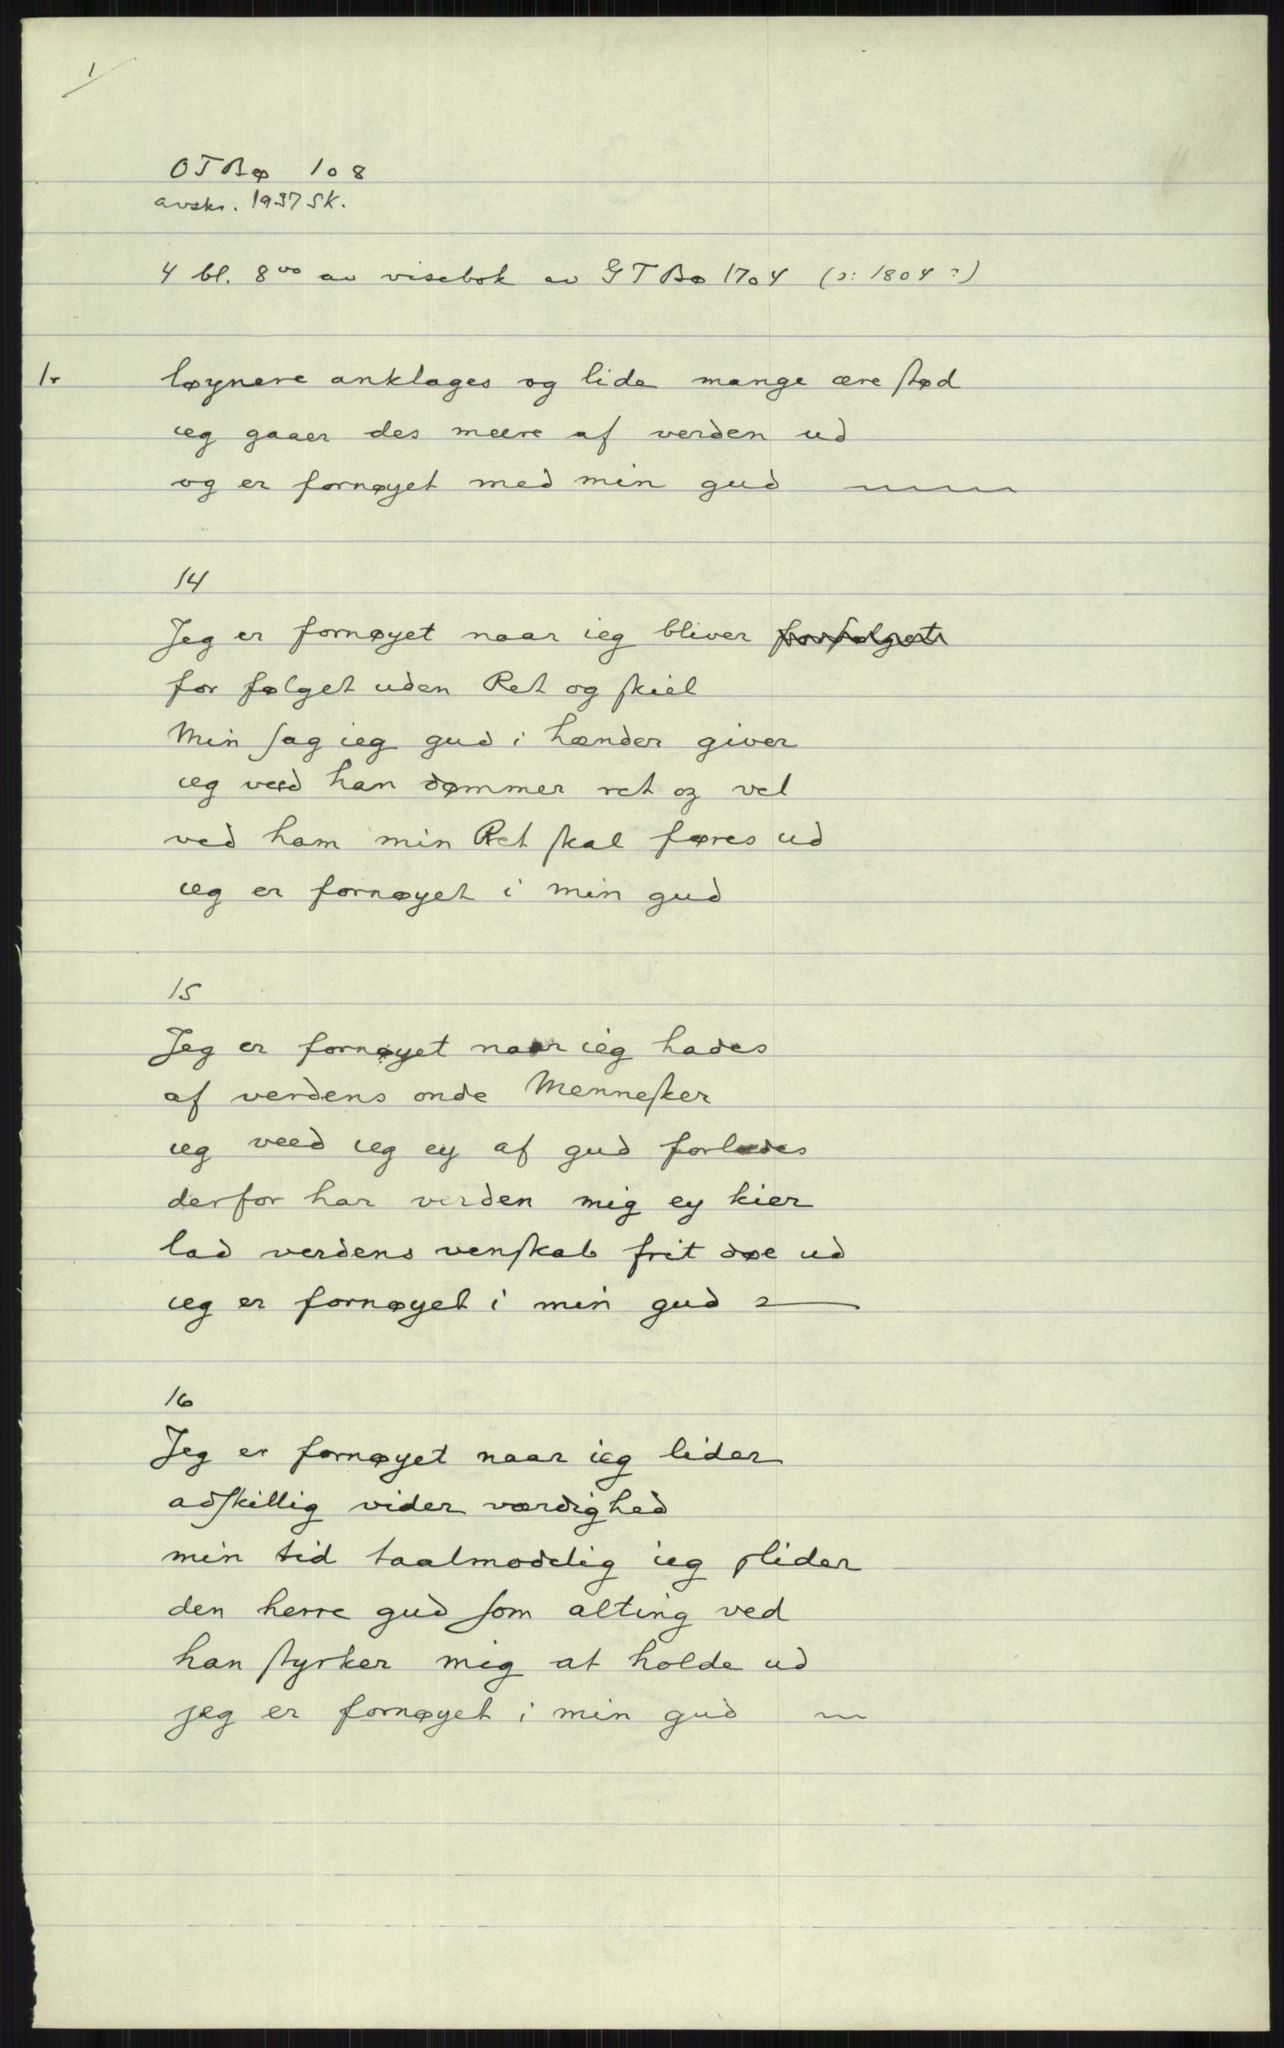 1
OTBø 108
avskr. 1937 SK.
4 bl. 8vo av visebok av GTBø 1704 (ɔ: 1804?)
1r løgnere anklages og lide mange ære stød
ieg gaaer des meere af verden ud
og er fornøyet med min gud
14
Jeg er fornøyet naar ieg bliver forfølget
for følget uden Ret og skiel
Min sag ieg gud i hænder giver
ieg veed han dømmer ret og vel
ved ham min Ret skal føres ud
ieg er fornøyet i min gud
15
Jeg er fornøyet naar ieg hades
af verdens onde Mennesker
ieg veed ieg ey af gud forlades
derfor har verden mig ey kier
lad verdens venskab frit døe ud
ieg er fornøyet i min gud
16
Jeg er fornøyet naar ieg lider
adskillig vider værdighed
min tid taalmodelig ieg slider
den herre gud som alting ved
han styrker mig at holde ud
jeg er fornøyet i min gud